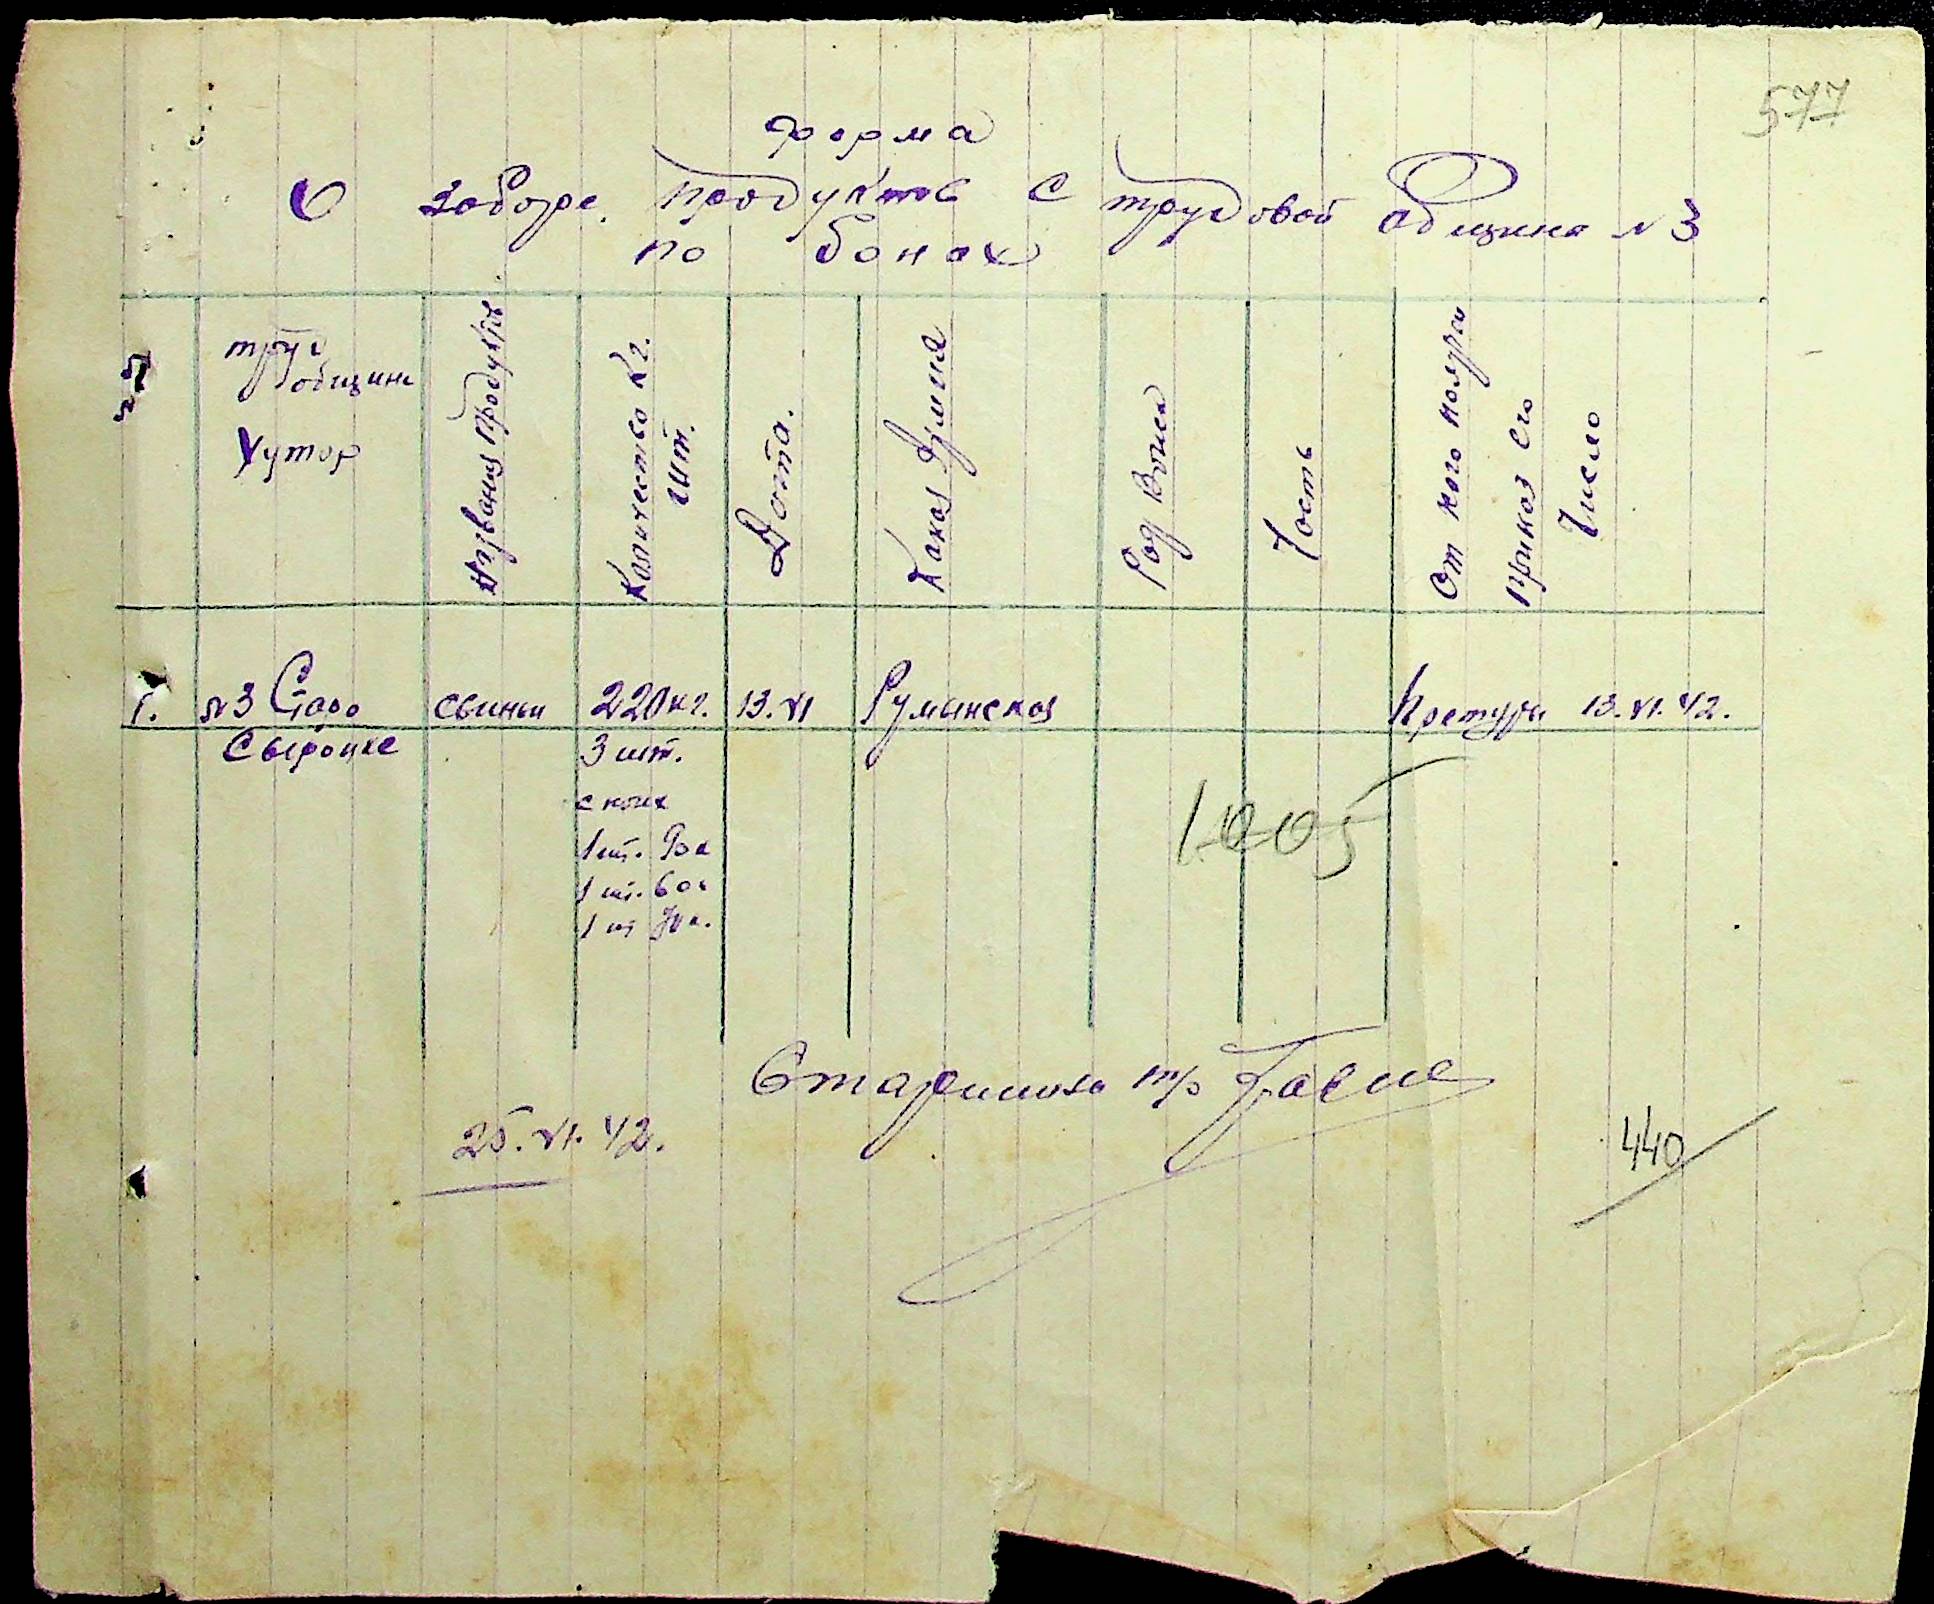 577
форма
О заборе продуктов с трудовой общины №3
по бонах
№
труд общины
Хутор
Название продуктов
Количество кг.
шт.
Дата.
Какая Армия
Род Войск
Часть
От кого наряд
приказ его
Число
1. №3 Старо свиньи 220 кг. 13.VI Румынская Претура 13.VI.42.
3 шт.
с них
1 шт. 90 к
1 шт. 60 к
1 шт 70 к.
1005
Старшина т/о
25.VI.42.
440